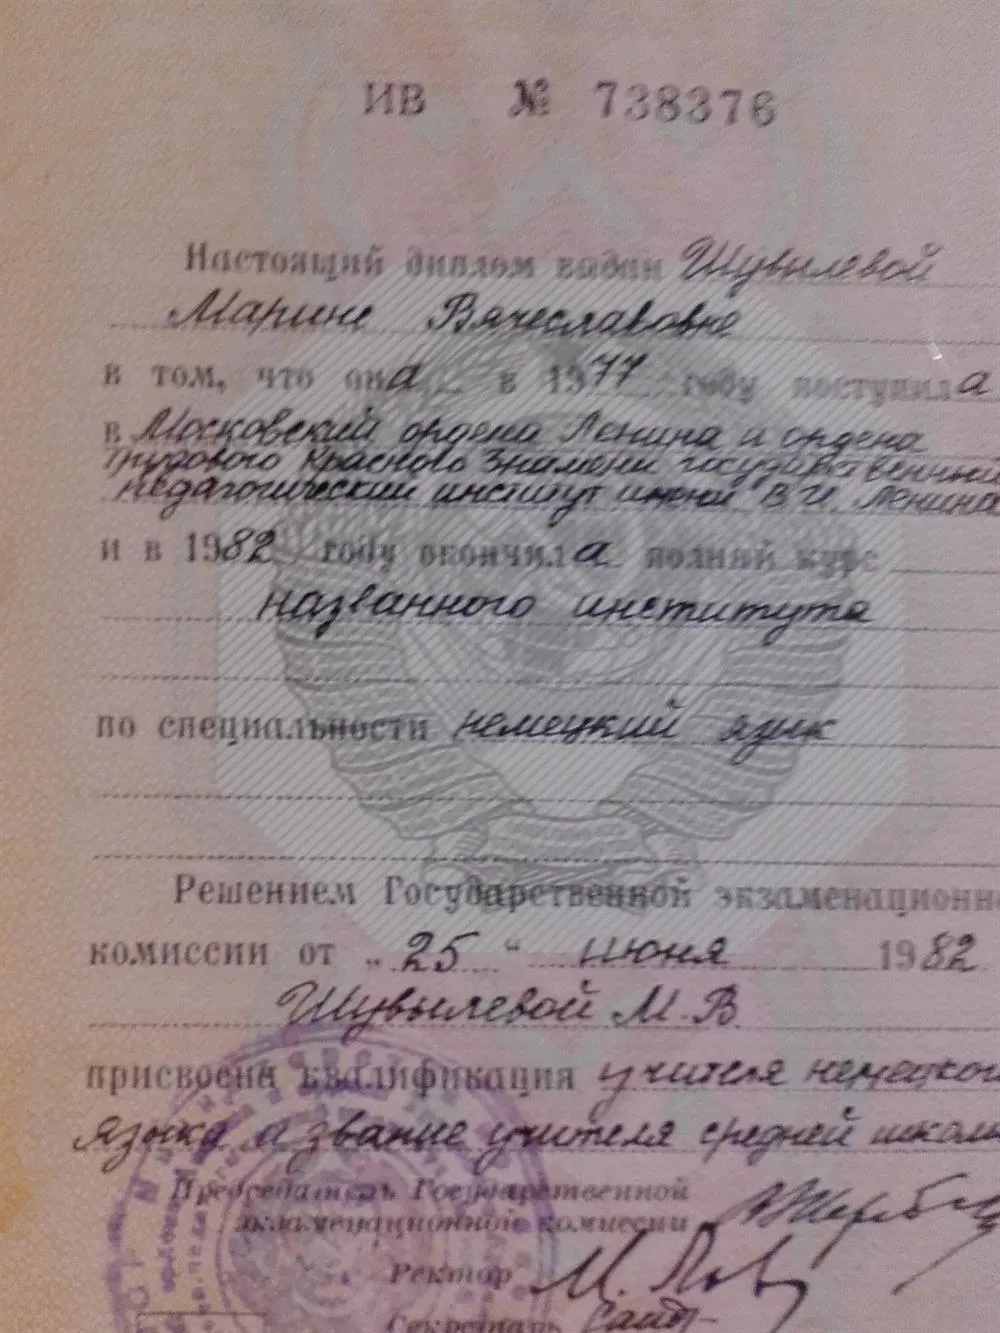 ИВ № 738376
Настоящий диплом выдан Шувылевой
Марине Вячеславовне
в том, что она в 1977 году поступила
в Московский ордена Ленина и ордена
Трудового Красного Знамени государственный
педагогический институт имени В. И. Ленина
и в 1982 году окончила полный курс
названного института
по специальности немецкий язык
Решением Государственной экзаменационно
комиссии от „25“ июня 1982
Шувылевой М. В.
присвоена квалификация учителя немецкого
языка и звание учителя средней школы
Председатель Государственной
экзаменационной комиссии
Ректор
Секретарь